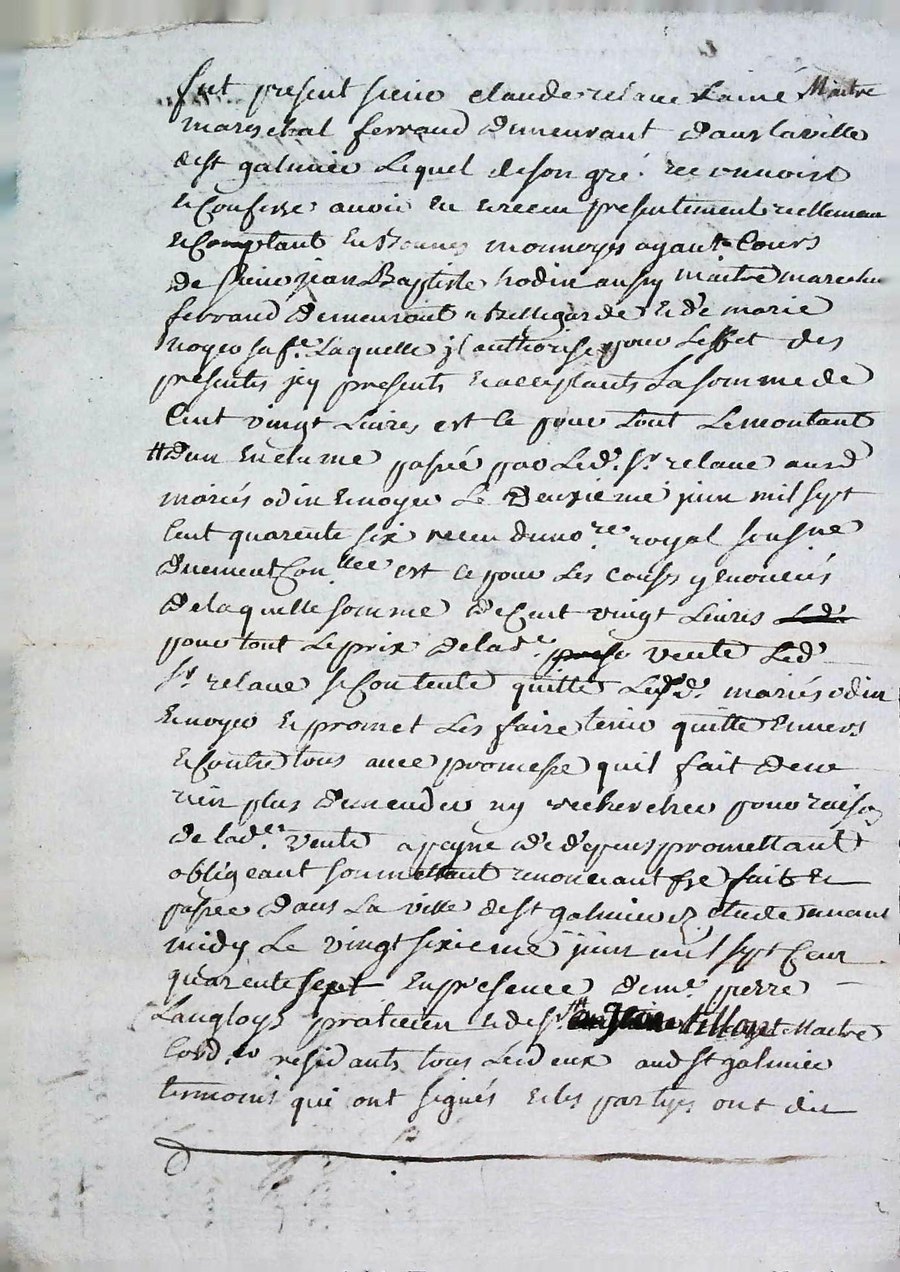 fut present sieur claude relave Lainé Maitre
mareschal ferrand demeurant dans la ville
de st galmier Lequel de son gré reconnoist
& Confesse avoir eu & receu presentement reellement
& Comptant En Bonnes monnoyes ayant Cours
de sieur jean Baptiste hodin aussy maitre marechal
ferrand demeurant a Bellegarde & de marie
noyer sa fe. Laquelle jl authorise pour Leffet des
presentes jcy presents & acceptants La somme de
Cent vingt Livres est ce pour tout Le montant
# dun Enclume passé par Led. sr. relave aud
mariés odin & noyer Le deuxième juin mil sept
Cent quarente six receu du no.re royal sousne
duement Con.llee est ce pour Les causes y enoncés
de laquelle somme de Cent vingt Livres
pour tout Le prix de lad.e vente Led
sr. relave se Contente quitte Lesd. mariés odin
& noyer & promet Les faire tenir quitte Envers
& Contre tous avec promesse quil fait de ne
rien plus demender ny rechercher pour raison
de lad.e vente a peyne de depens promettant
obligeant soumettant renonceant fre fait &
passée dans La ville de st galmier étude avant
midy Le vingt sixieme juin mil sept Cent
quarente sept En presence de me. pierre
Langloys praticien & de sr Jean tillon Maitre
Cord.er residants tous Les deux aud st galmier
temoins qui ont signés & les partyes ont dit